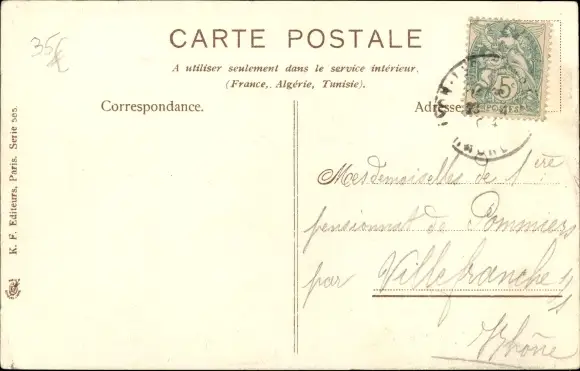 35€
CARTE POSTALE
A utiliser seulement dans le service intérieur.
(France, Algérie, Tunisie).
Correspondance.
Adresse
5c
POSTES
RHONE
Mesdemoiselles de 1ère
pensionnat de Pommiers
par Villefranche s/s
Rhône
K. F. Editeurs, Paris. Serie 565.